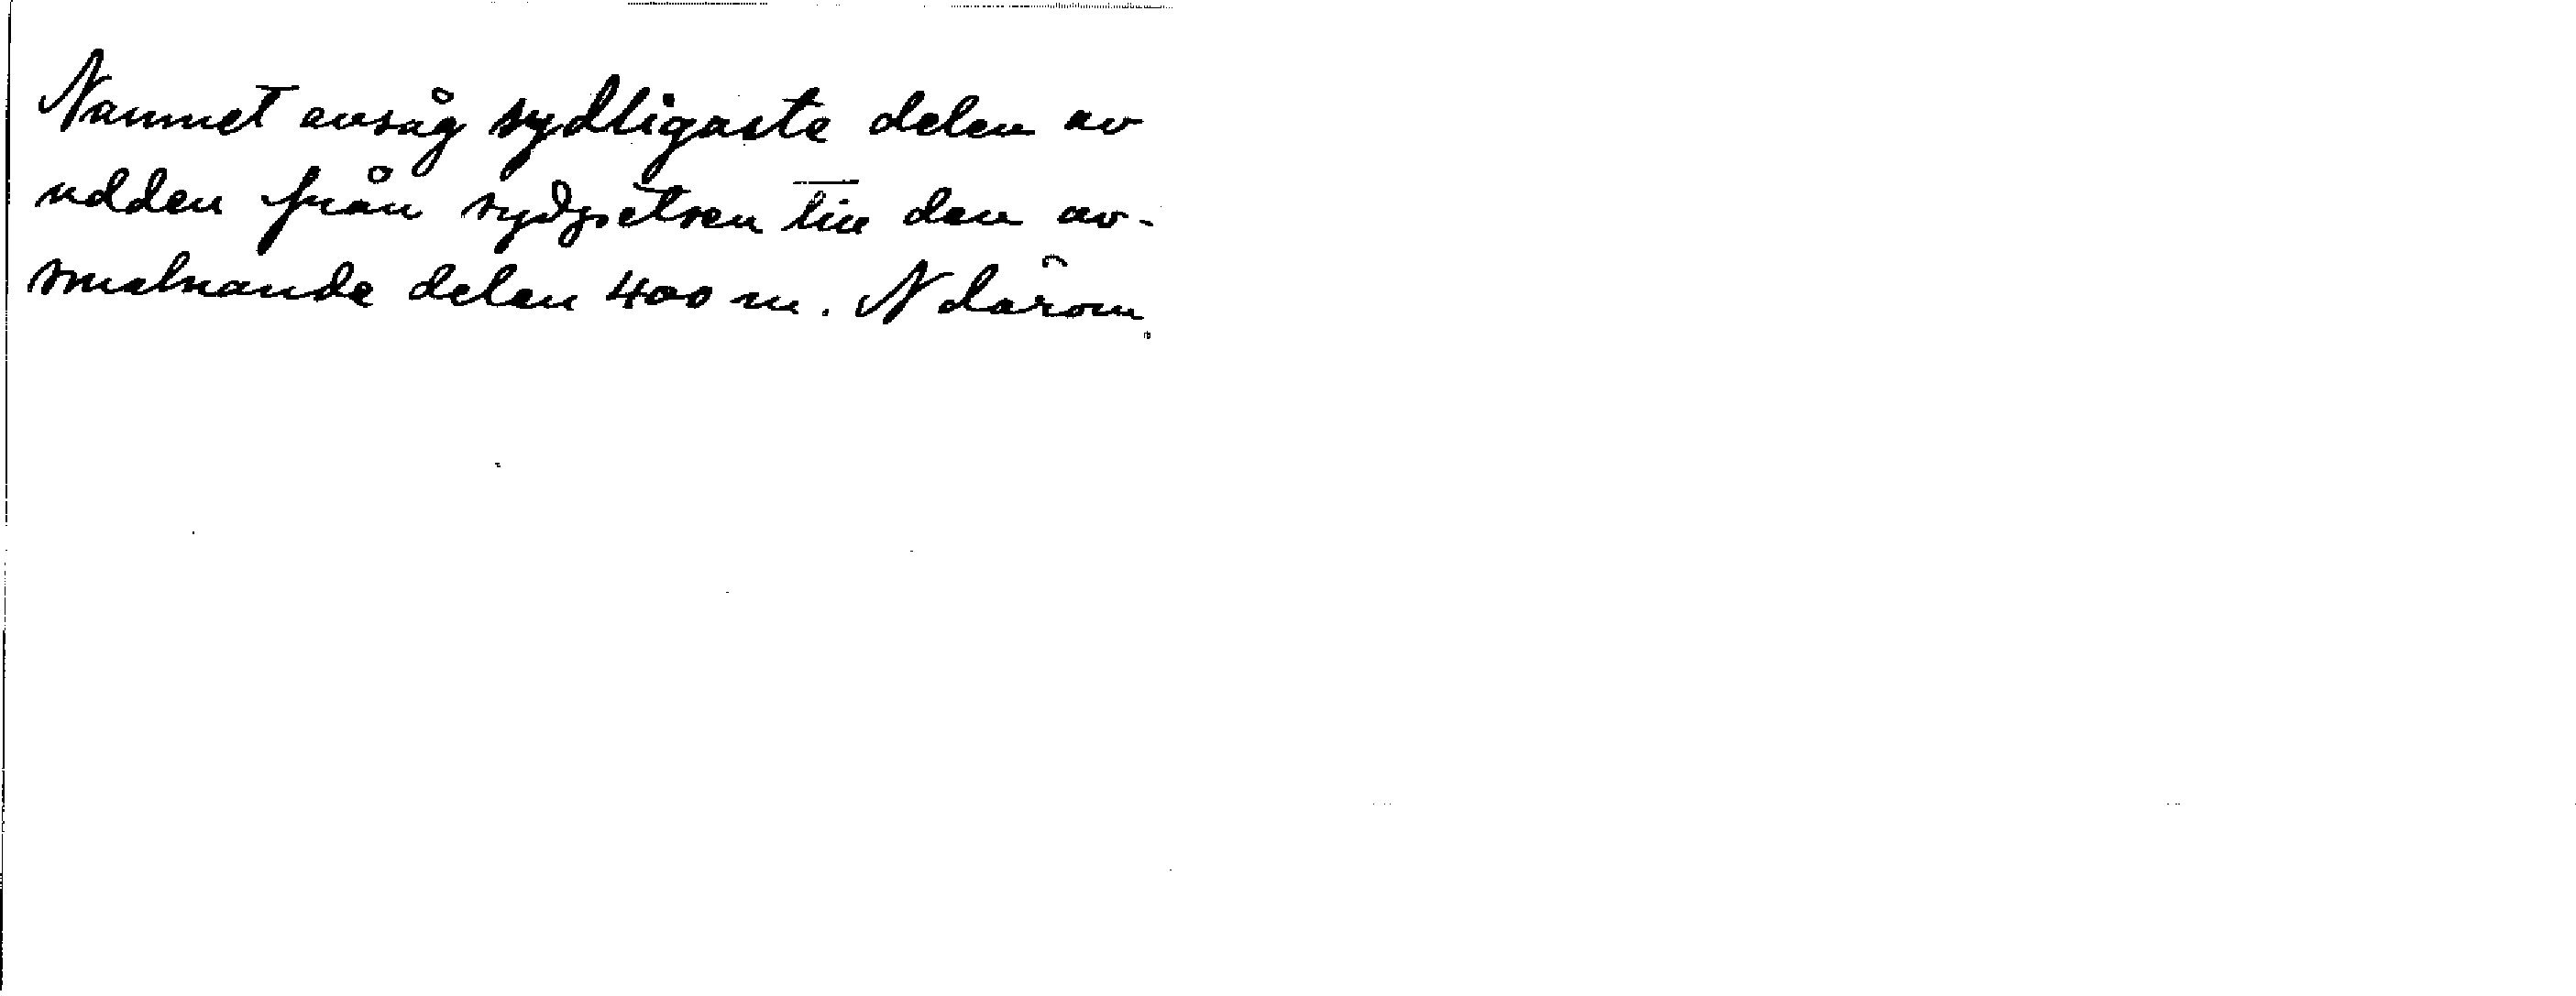 Namnet avsåg sydligaste delen av
udden från sydspetsen till den av-
smalnande delen 400 m. N därom.